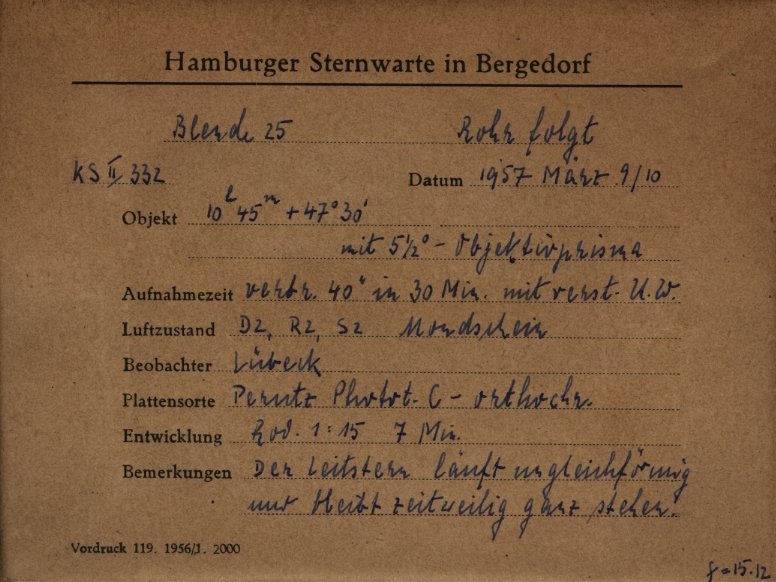 Hamburger Sternwarte in Bergedorf
Blende 25 Rohr folgt
KS II 332 Datum 1957 März 9/10
Objekt 10h 45m +47° 30'
mit 5 1/2° - Objektivprisma
Aufnahmezeit verbr. 40" in 30 Min. mit verst. U.W.
Luftzustand D2, R2, S2 Mondschein
Beobachter Lübeck
Plattensorte Perutz Photot. C - orthochr.
Entwicklung Rod. 1:15 7 Min.
Bemerkungen Der Leitstern läuft ungleichförmig
und bleibt zeitweilig ganz stehen.
Vordruck 119. 1956/1. 2000
f = 15.12